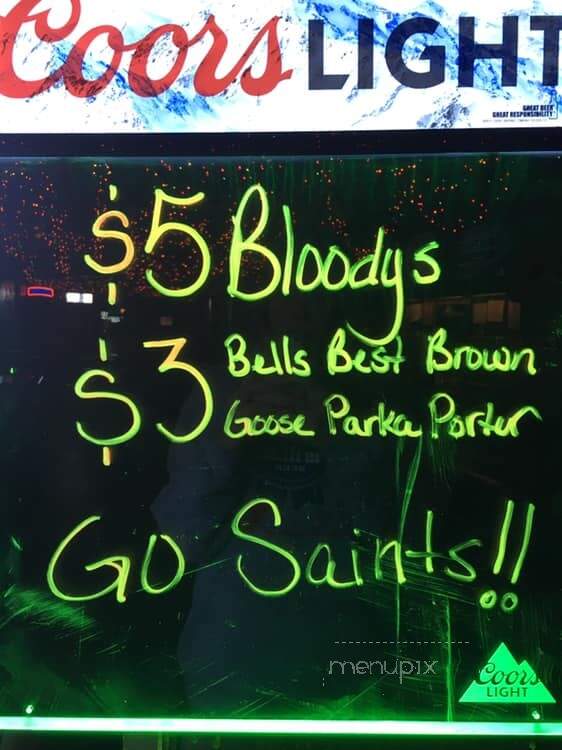 Coors LIGHT
GREAT BEER
GREAT RESPONSIBILITY
$5 Bloodys
$3 Bells Best Brown
Goose Parka Porter
Go Saints!!
menupix
Coors
LIGHT